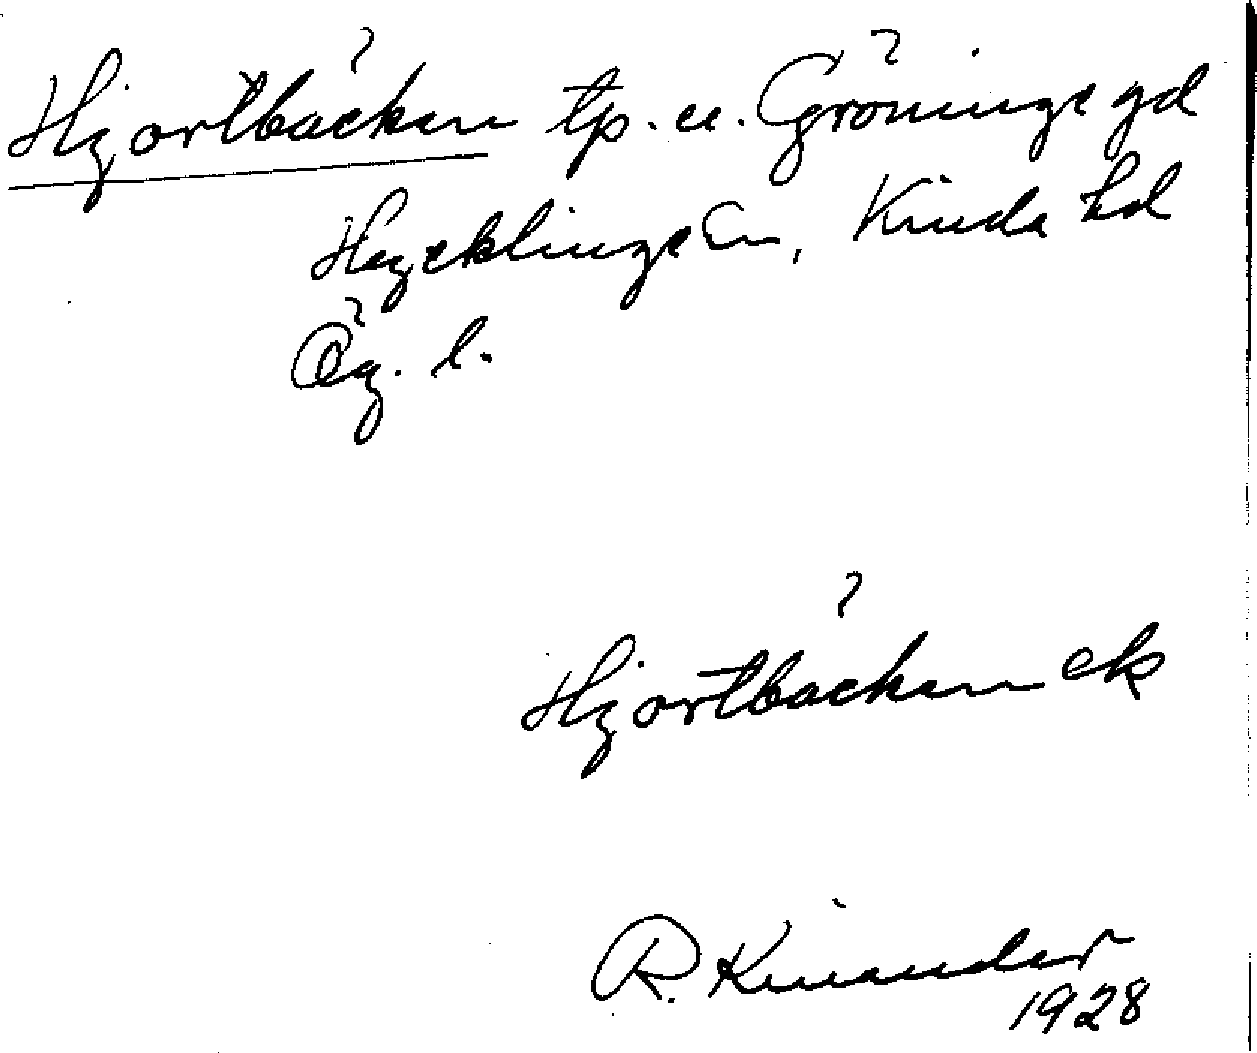 Hjortbäcken tp. u. Gröninge gd
Hycklinge sn, Kinda hd
Ög. l.
Hjortbäcken ek
R. Kinander
1928